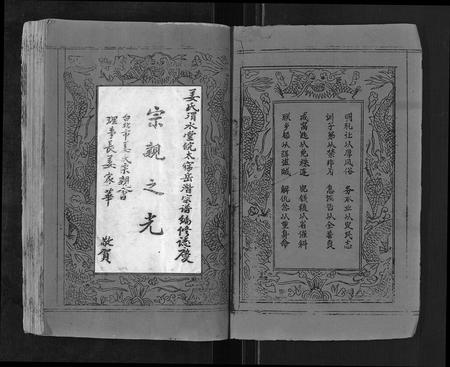 明礼让以厚风俗 务本业以定民志
训子弟以禁非为 息诬告以全善良
戒窝逃以免株连 完钱粮以省催科
联乡邻以弭盗贼 解仇忿以重身命
姜氏渭水堂 太 岳 宗谱编修誌慶
宗親之光
台北市姜氏宗親會
理事長姜家華
敬賀